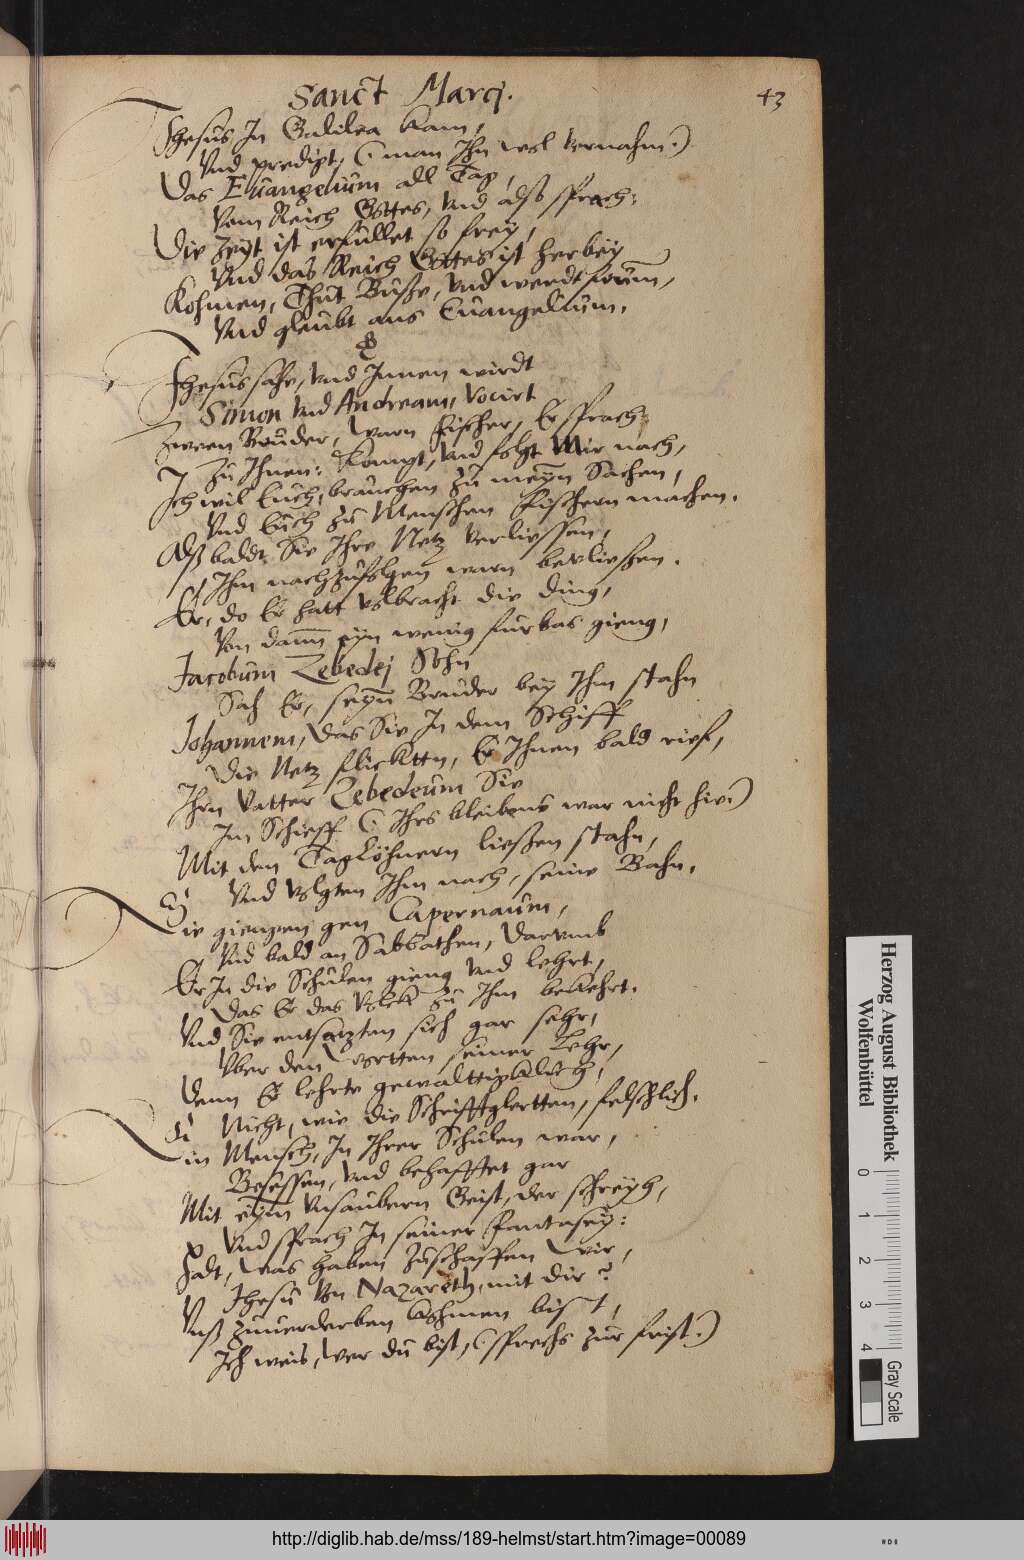 Sanct Marcj.
43
Jhesus In Galilea kam,
Vnd predigt, (: man Ihn wol vernahm :)
Das Euangelium all Tag,
Vom Reich Gottes, vnd also sprach:
Die Zeyt ist erfullet so frey,
Vnd das Reich Gottes ist herbey
Kohmen, Thut Busse, vnd werdt frum,
Vnd gleubt ans Euangelium.
Jhesus sahe, vnd Innen wirdt
Simon vnd Andream, vocirt
Zween Bruder, warn Fischer, Er sprach
Zu Ihnen: Kompt, vnd folgt Mir nach,
Ich wil Euch, brauchen zu meyn Sachen,
Vnd Euch zu Menschen Fischern machen.
Alß baldt Sie Ihre Netz verliessen,
Ihm nachzufolgen warn bevliessen.
Er, do Er hatt volbracht die ding,
Von dann eyn wenig furbas gieng,
Jacobum Zebedej Sohn
Sah Er, seyn Bruder bey Ihm stahn
Johannem, das Sie In dem Schiff
Die Netz flicktten, Er Ihnen bald rieff,
Ihrn Vatter Zebedeum Sie
Im Schieff (: Ihrs bleibens war nicht hie :)
Mit den Taglöhnern liessen stahn,
Vnd volgten Ihm nach, seine Bahn.
Sie giengen gen Capernaum,
Vnd bald an Sabbathen, darumb
Er In die Schulen gieng vnd lehrt,
Das Er das Volck zu Ihm bekehrt.
Vnd Sie entsatzten sich gar sehr,
Vber den Wortten seiner Lehr,
Denn Er lehrte gewalttigklich,
Nicht, wie die Schrifftglertten, felschlich.
Ein Mensch, In Ihrer Schulen war,
Besessen, vnd behafftet gar
Mit eym vnsaubern Geist, der schreyh,
Vnd sprach In seiner Fantasey:
Halt, was haben zuschaffen Wir,
Jhesu von Nazareth, mit dir?
Vnß zuuerderben kohmen bist,
Ich weis, wer du bist, (: sprechs zur frist :)
Herzog August Bibliothek
Wolfenbüttel
0 1 2 3 4
Gray Scale
http://diglib.hab.de/mss/189-helmst/start.htm?image=00089